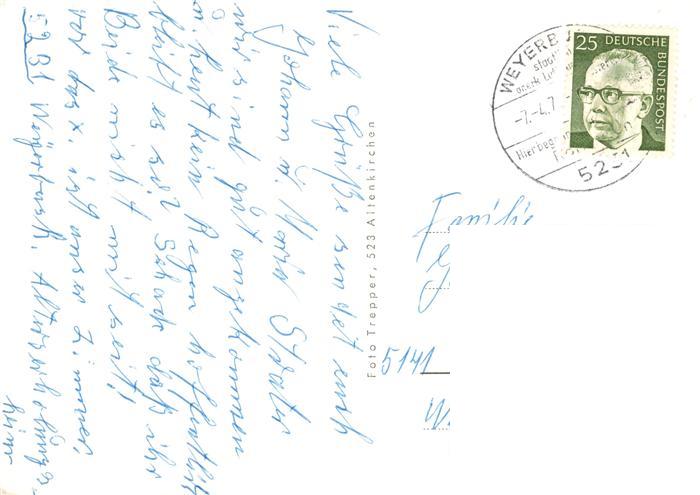 Viele Grüße sendet euch
Johann u. Maria
wir sind gut angekommen
u. heut kein Regen hoffentlich
bleibt es so? Schade daß ihr
Beide nicht mit seit!
vor das x. ist unser Zimmer,
5231 Weyerbusch, Alterserholungs-
heim
Foto Trepper, 523 Altenkirchen
WEYERB
-7.-4.7
Hier beg
5231
25 DEUTSCHE BUNDESPOST
Familie
5141